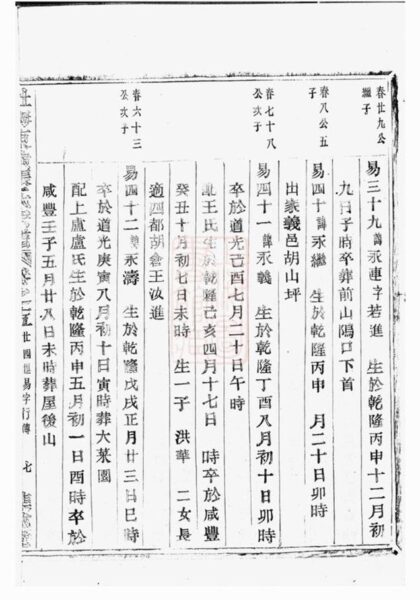 春廿九公
繼子
易三十九諱永連字若進 生於乾隆丙申十二月初
九日子時卒葬前山隝口下首
春八公五
子
易四十諱永繼 生於乾隆丙申 月二十日卯時
出家義邑胡山坪
春七十八
公次子
易四十一諱永義 生於乾隆丁酉八月初十日卯時
卒於道光己酉七月二十日午時
配王氏生於乾隆己亥四月十七日 時卒於咸豐
癸丑十月初七日未時 生一子 洪華 二女長
適四都胡倉王汝進
春六十三
公次子
易四十二諱永濤 生於乾隆戊戌正月廿三日巳時
卒於道光庚寅八月初十日寅時葬大菜園
配上盧盧氏生於乾隆丙申五月初一日酉時卒於
咸豐壬子五月廿八日未時葬屋後山
廿四 易字行傳 七